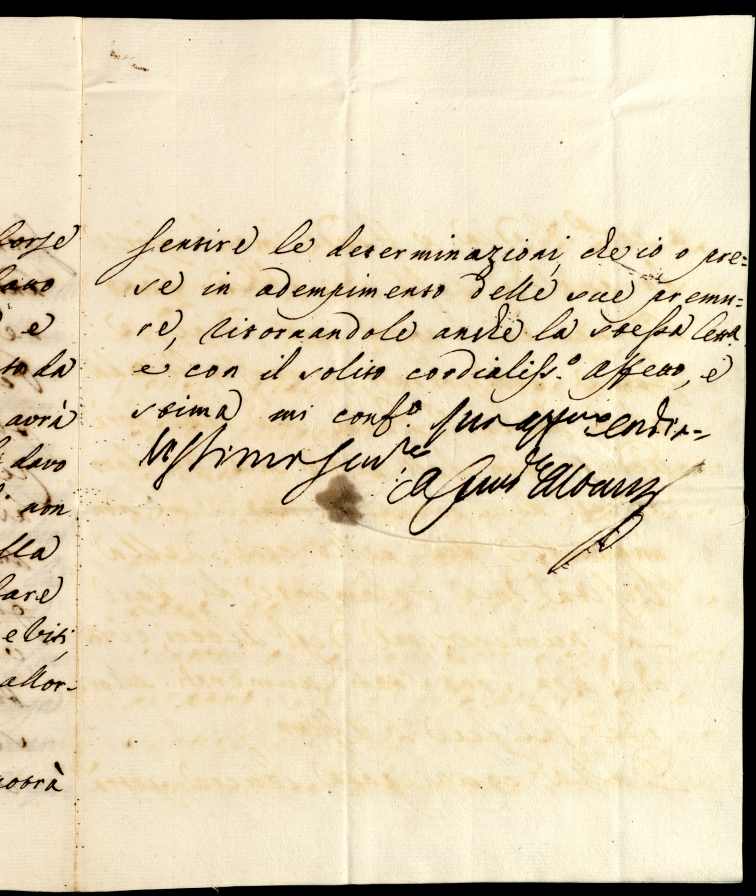 forse
e
to da
avrà
davo
non
lla
fare
e visi,
allor-
potrà
sentire le determinazioni, che io ò pre=
se in adempimento delle sue premu=
re, ritornandole anche la stessa lett.ª
e con il solito cordialiss.º affetto, e
stima mi conf.º suo aff.mo cordia=
l.issimo serv.re
Albani